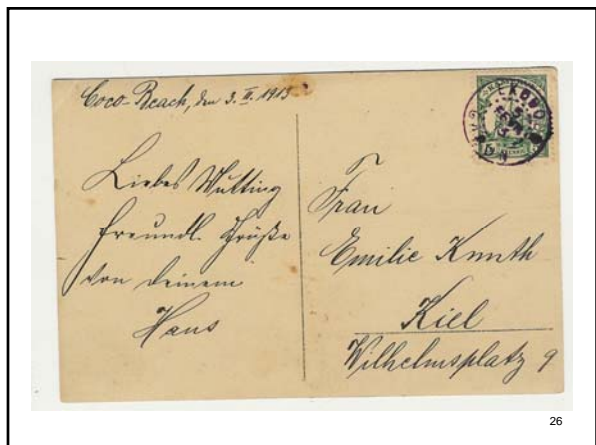 Coco-Beach, den 3. II. 1913
Liebes Mutting
freundl. Grüße
von deinem
Hans
Frau
Emilie Knuth
Kiel
Wilhelmsplatz 9
26